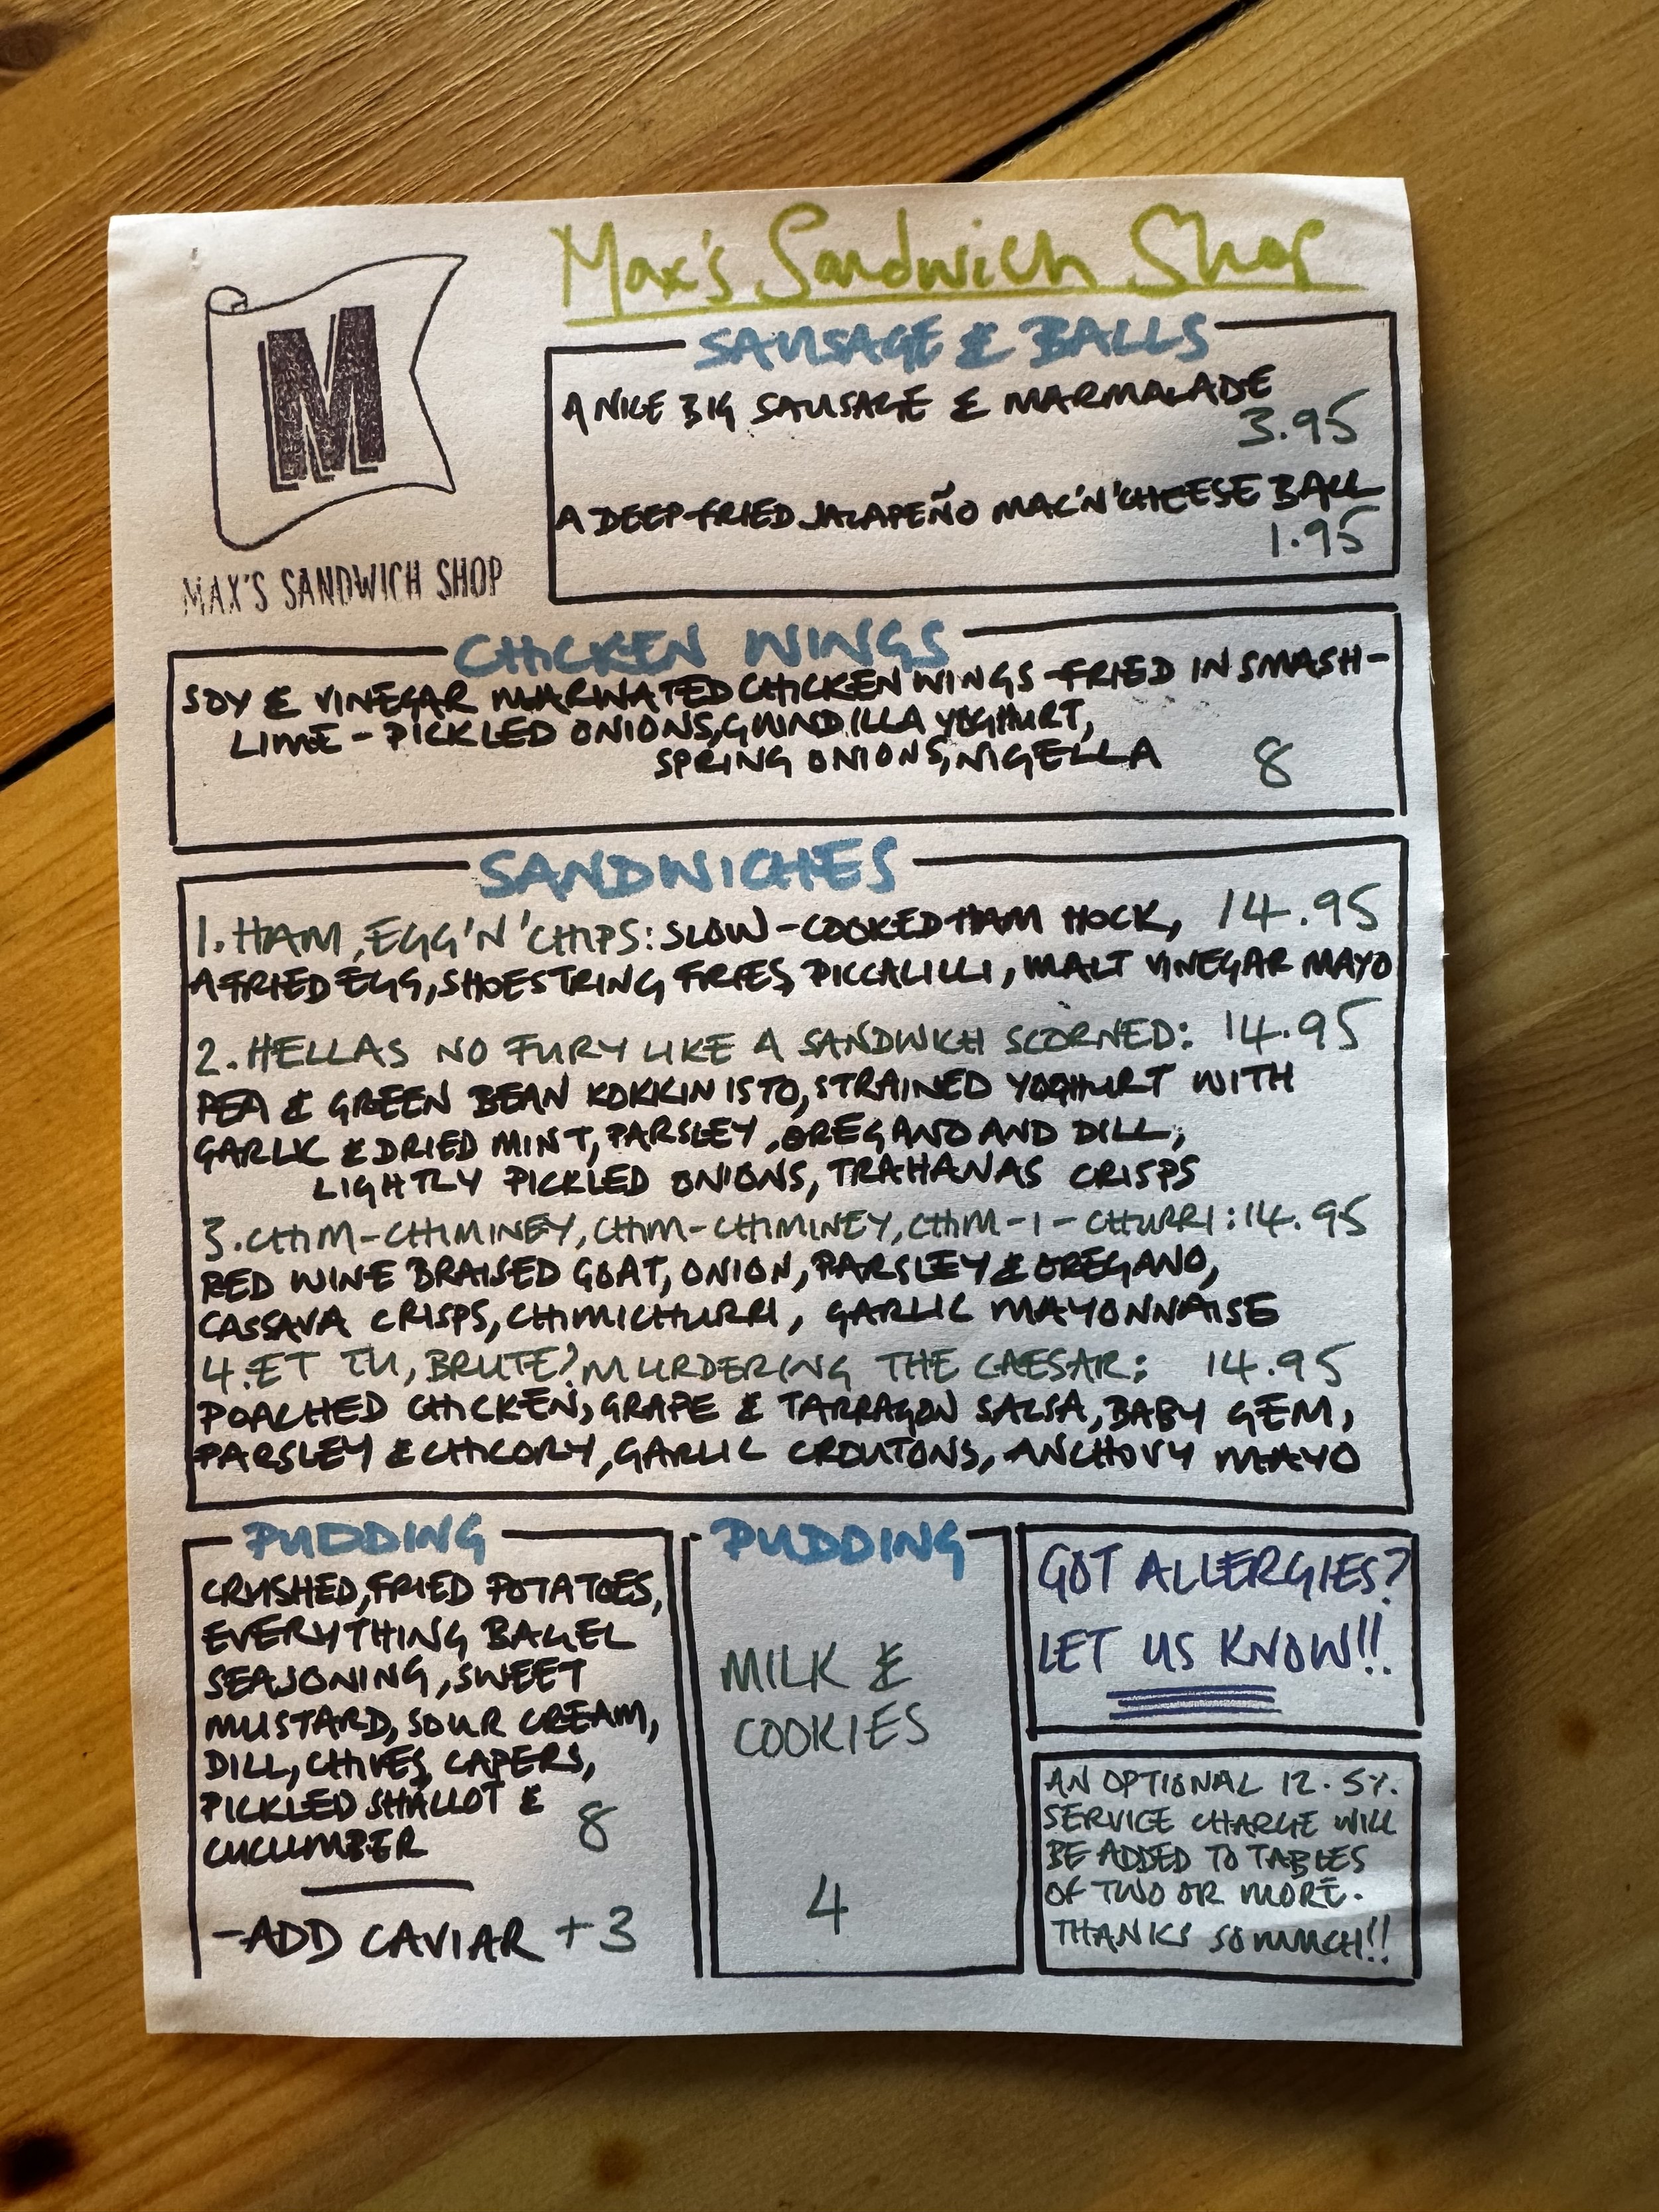 Max's Sandwich Shop
M
MAX'S SANDWICH SHOP
SAUSAGE & BALLS
A NICE BIG SAUSAGE & MARMALADE
3.95
A DEEP-FRIED JALAPEÑO MAC'N'CHEESE BALL
1.95
CHICKEN WINGS
SOY & VINEGAR MARINATED CHICKEN WINGS FRIED IN SMASH-
LIME-PICKLED ONIONS, GUINDILLA YOGHURT,
SPRING ONIONS, NIGELLA 8
SANDWICHES
1. HAM, EGG'N'CHIPS: SLOW-COOKED HAM HOCK, 14.95
A FRIED EGG, SHOESTRING FRIES, PICCALILLI, MALT VINEGAR MAYO
2. HELLAS NO FURY LIKE A SANDWICH SCORNED: 14.95
PEA & GREEN BEAN KOKKINISTO, STRAINED YOGHURT WITH
GARLIC & DRIED MINT, PARSLEY, OREGANO AND DILL,
LIGHTLY PICKLED ONIONS, TRAHANAS CRISPS
3. CHIM-CHIMINEY, CHIM-CHIMINEY, CHIM-I-CHURRI: 14.95
RED WINE BRAISED GOAT, ONION, PARSLEY & OREGANO,
CASSAVA CRISPS, CHIMICHURRI, GARLIC MAYONNAISE
4. ET TU, BRUTE? MURDERING THE CAESAR: 14.95
POACHED CHICKEN, GRAPE & TARRAGON SALSA, BABY GEM,
PARSLEY & CHICORY, GARLIC CROUTONS, ANCHOVY MAYO
PUDDING
CRUSHED, FRIED POTATOES,
EVERYTHING BAGEL
SEASONING, SWEET
MUSTARD, SOUR CREAM,
DILL, CHIVES, CAPERS,
PICKLED SHALLOT &
CUCUMBER 8
-ADD CAVIAR +3
PUDDING
MILK &
COOKIES
4
GOT ALLERGIES?
LET US KNOW!!
AN OPTIONAL 12.5%
SERVICE CHARGE WILL
BE ADDED TO TABLES
OF TWO OR MORE.
THANKS SO MUCH!!